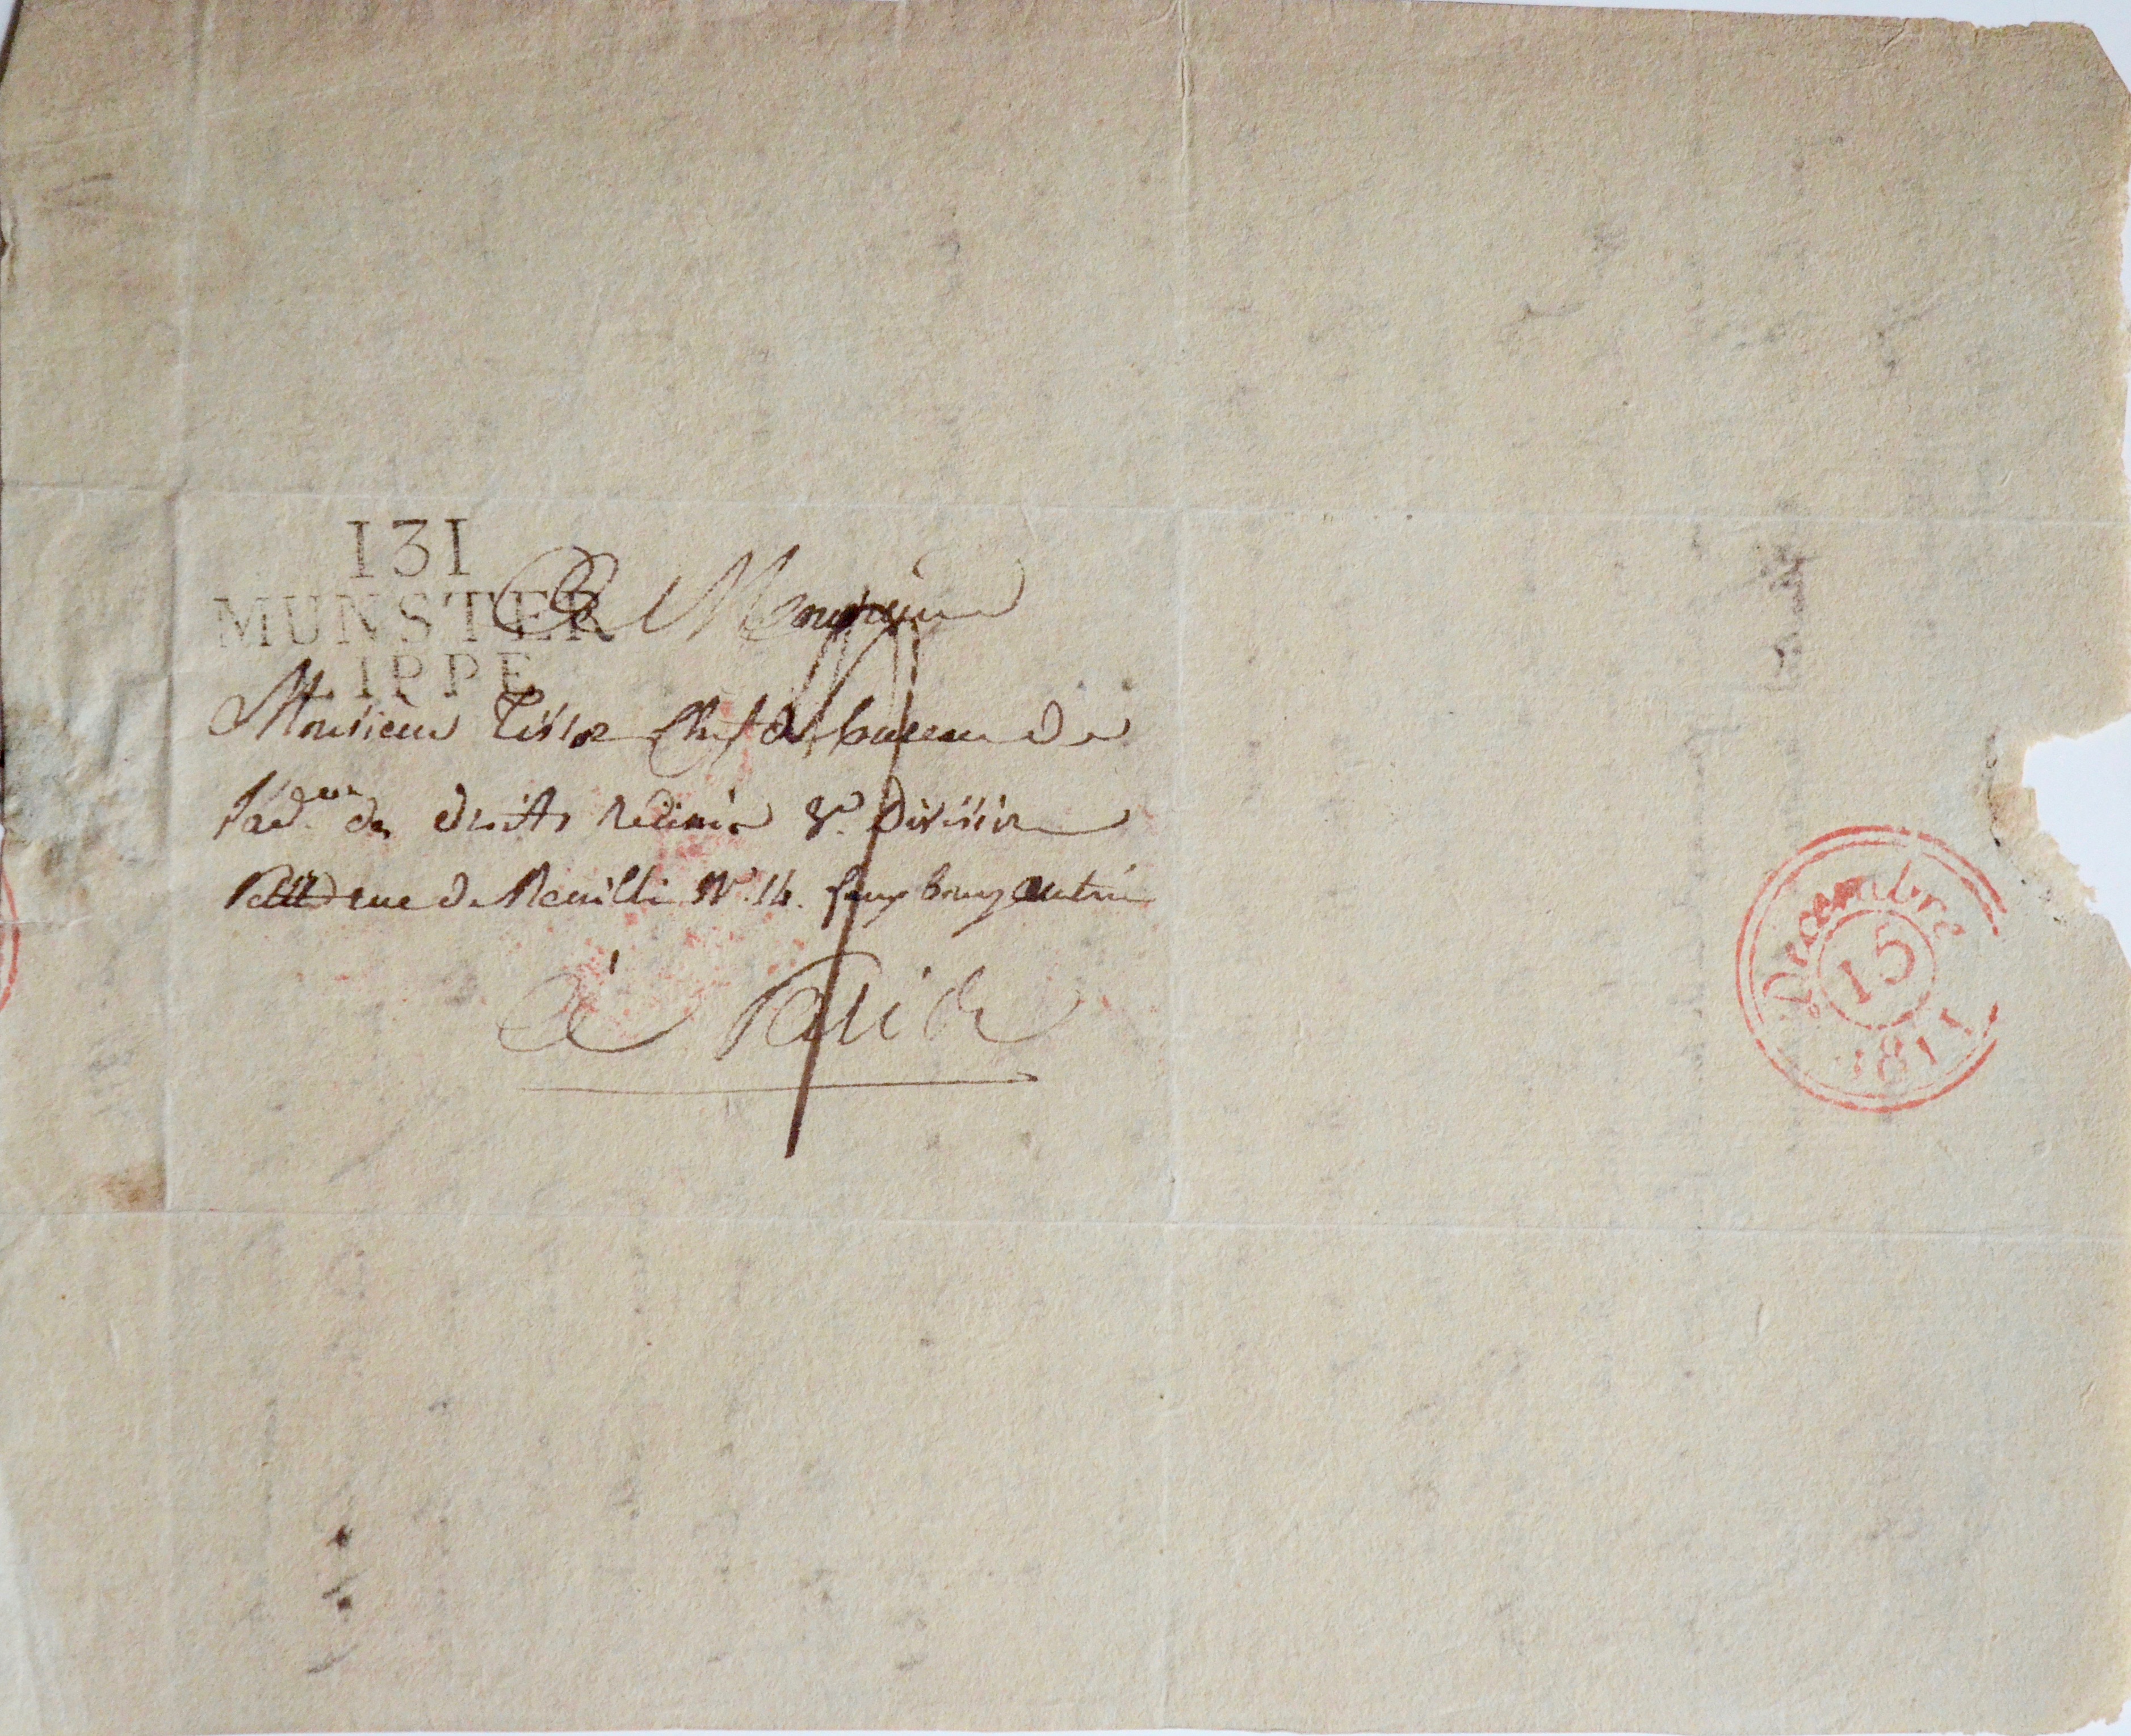 131
MUNSTER
LIPPE
A Monsieur
Monsieur Tissot Chef de bureau de
l'ad.on des droits Réunis 8e Division
Petite rue de Reuilli N.º 14. faux bourg Antoine
à Paris
Décembre
15
1811